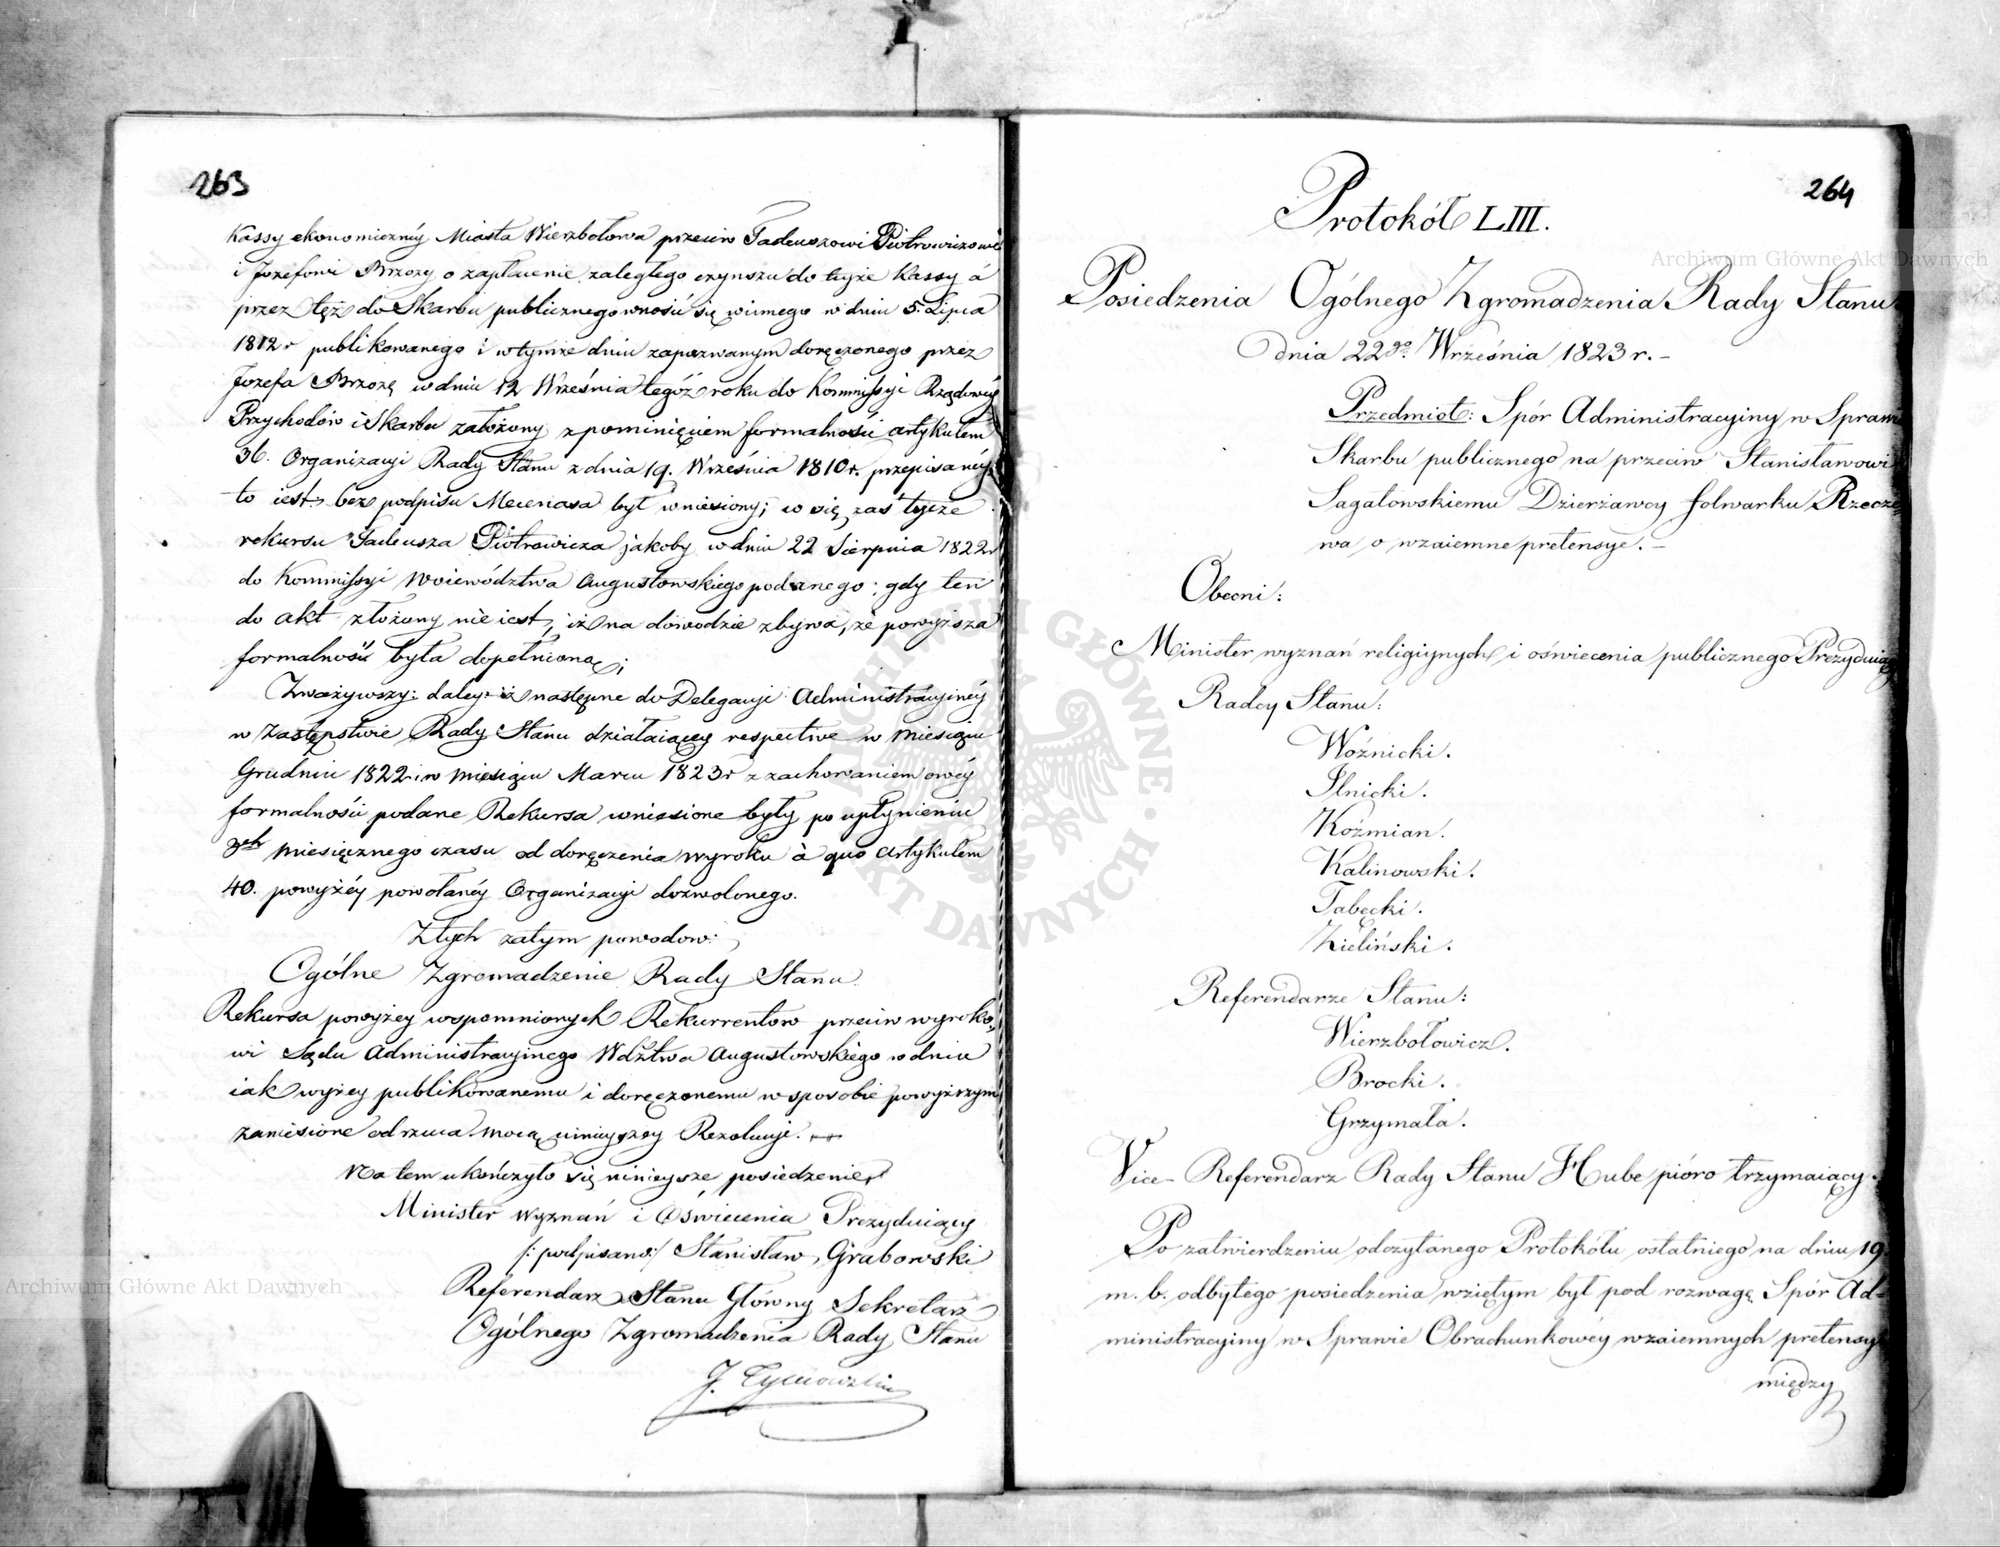 263
Kassy ekonomiczney Miasta Wierzbołowa przeciw Tadeuszowi Piotrowiczowi
i Józefowi Brzozy o zapłacenie zaległego czynszu do teyże Kassy á
przez tęż do Skarbu publicznego wnosić się winnego w dniu 5. Lipca
1822r publikowanego i wtymże dniu zapozwanym doręczonego przez
Józefa Brzozę w dniu 12 Września tegoż roku do Kommissyi Rządowéy
Przychodów i Skarbu założony z pominięciem formalności artykułem
36. Organizacyi Rady Stanu z dnia 19. Września 1810r. przepisanéy
to iest bez podpisu Mecenasa był wniesiony; w się zaś tycze
rekursu Tadeusza Piotrowicza jakoby w dniu 22 Sierpnia 1822r
do Kommissyi Woiewództwa Augustowskiego podanego; gdy ten
do akt złożony nie iest, iż na dowodzie zbywa, że powyższa
formalność była dopełnioną;
Zważywszy: daley iż następne do Delegacyi Administracyinéy
w Zastępstwie Rady Stanu działaiącey respective w miesiącu
Grudniu 1822 i w miesiącu Marcu 1823r z zachowaniem owéy
formalności podane Rekursa wniesione były po upłynieniu
3ch miesięcznego czasu od doręczenia wyroku à quo artykułem
40. powyżéy powołanéy Organizacyi dozwolonego.
Z tych zatym powodow:
Ogólne Zgromadzenie Rady Stanu
Rekursa powyżey wspomnionych Rekurrentow przeciw wyroko-
wi Sądu Administracyinego Wdztwa Augustowskiego w dniu
iak wyżey publikowanemu i doręczonemu w sposobie powyższym
zaniesione odrzuca mocą ninieyszey Rezolucyi.
Na tem ukończyło się ninieysze posiedzenie
Minister Wyznań i Oświecenia Prezyduiący
/: podpisano:/ Stanisław Grabowski
Referendarz Stanu Główny Sekretarz
Ogólnego Zgromadzenia Rady Stanu
J. Tymowski
264
Protokół LIII.
Posiedzenia Ogólnego Zgromadzenia Rady Stanu
dnia 22go Września 1823 r.-
Przedmiot: Spór Administracyiny w Spraw
Skarbu publicznego na przeciw Stanisławowi
Sagatowskiemu Dzierżawcy folwarku Rzecze-
wa o wzaiemne pretensye.-
Obecni:
Minister wyznań religiynych i oświecenia publicznego Prezyduiąc
Radcy Stanu:
Woźnicki.
Ilnicki.
Koźmian.
Kalinowski.
Tabęcki.
Zieliński.
Referendarze Stanu:
Wierzbołowicz.
Brocki.
Grzymała.
Vice-Referendarz Rady Stanu Hube pióro trzymaiący.
Po zatwierdzeniu odczytanego Protokółu ostatniego na dniu 19
m. b. odbytego posiedzenia wziętym był pod rozwagę Spór Ad-
ministracyiny w Sprawie Obrachunkowéy wzaiemnych pretensyi
między
Archiwum Główne Akt Dawnych
Archiwum Główne Akt Dawnych
ARCHIWUM GŁÓWNE AKT DAWNYCH